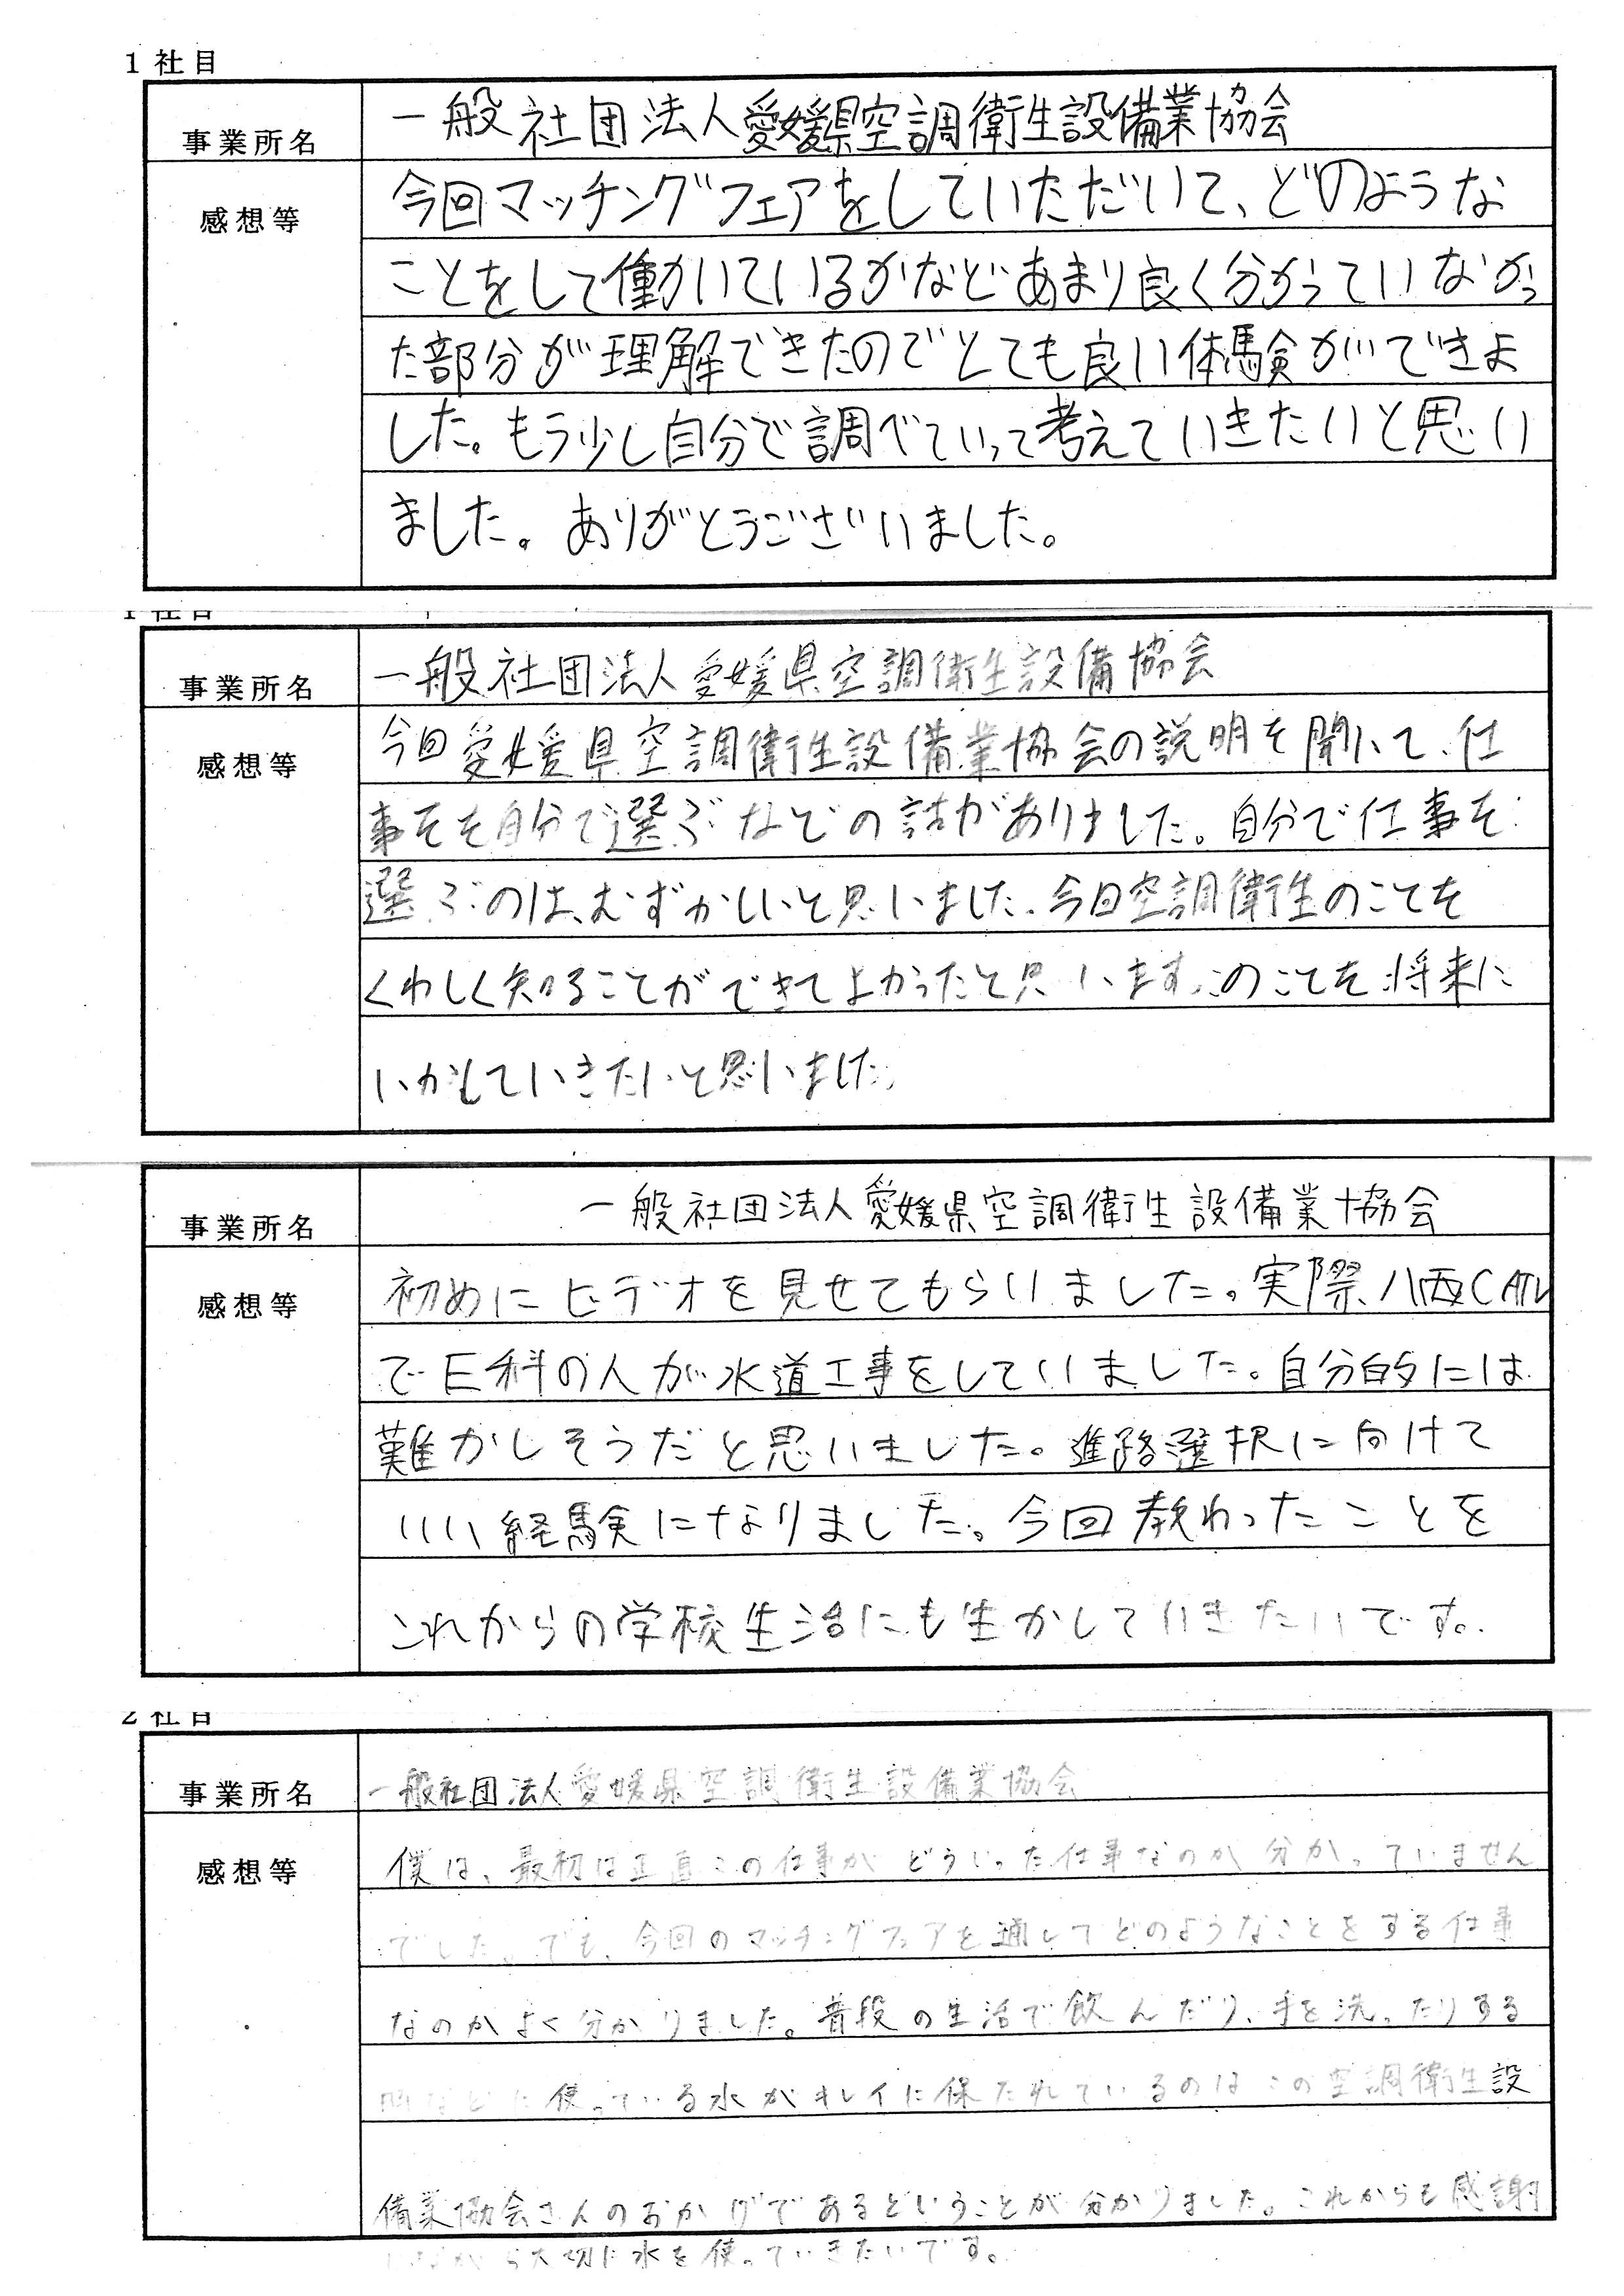 1 社目
事業所名
一般社団法人愛媛県空調衛生設備業協会
感想等
今回マッチングフェアをしていただいて、どのような
ことをして働いているかなどあまり良く分かっていなかっ
た部分が理解できたのでとても良い体験ができま
した。もう少し自分で調べていって考えていきたいと思い
ました。ありがとうございました。
1 社目
事業所名
一般社団法人愛媛県空調衛生設備協会
感想等
今回愛媛県空調衛生設備業協会の説明を聞いて、仕
事をを自分で選ぶなどの話がありました。自分で仕事を
選ぶのは、むずかしいと思いました。今日空調衛生のことを
くわしく知ることができてよかったと思います。このことを将来に
いかしていきたいと思いました。
事業所名
一般社団法人愛媛県空調衛生設備業協会
感想等
初めにビデオを見せてもらいました。実際八西CATV
でE科の人が水道工事をしていました。自分的には
難かしそうだと思いました。進路選択に向けて
いい経験になりました。今回教わったことを
これからの学校生活にも生かしていきたいです。
2 社目
事業所名
一般社団法人愛媛県空調衛生設備業協会
感想等
僕は、最初は正直この仕事がどういった仕事なのか分かっていません
でした。でも、今回のマッチングフェアを通してどのようなことをする仕事
なのかよく分かりました。普段の生活で飲んだり、手を洗ったりする
時などに使っている水がキレイに保たれているのはこの空調衛生設
備業協会さんのおかげであるということが分かりました。これからも感謝
しながら大切に水を使っていきたいです。